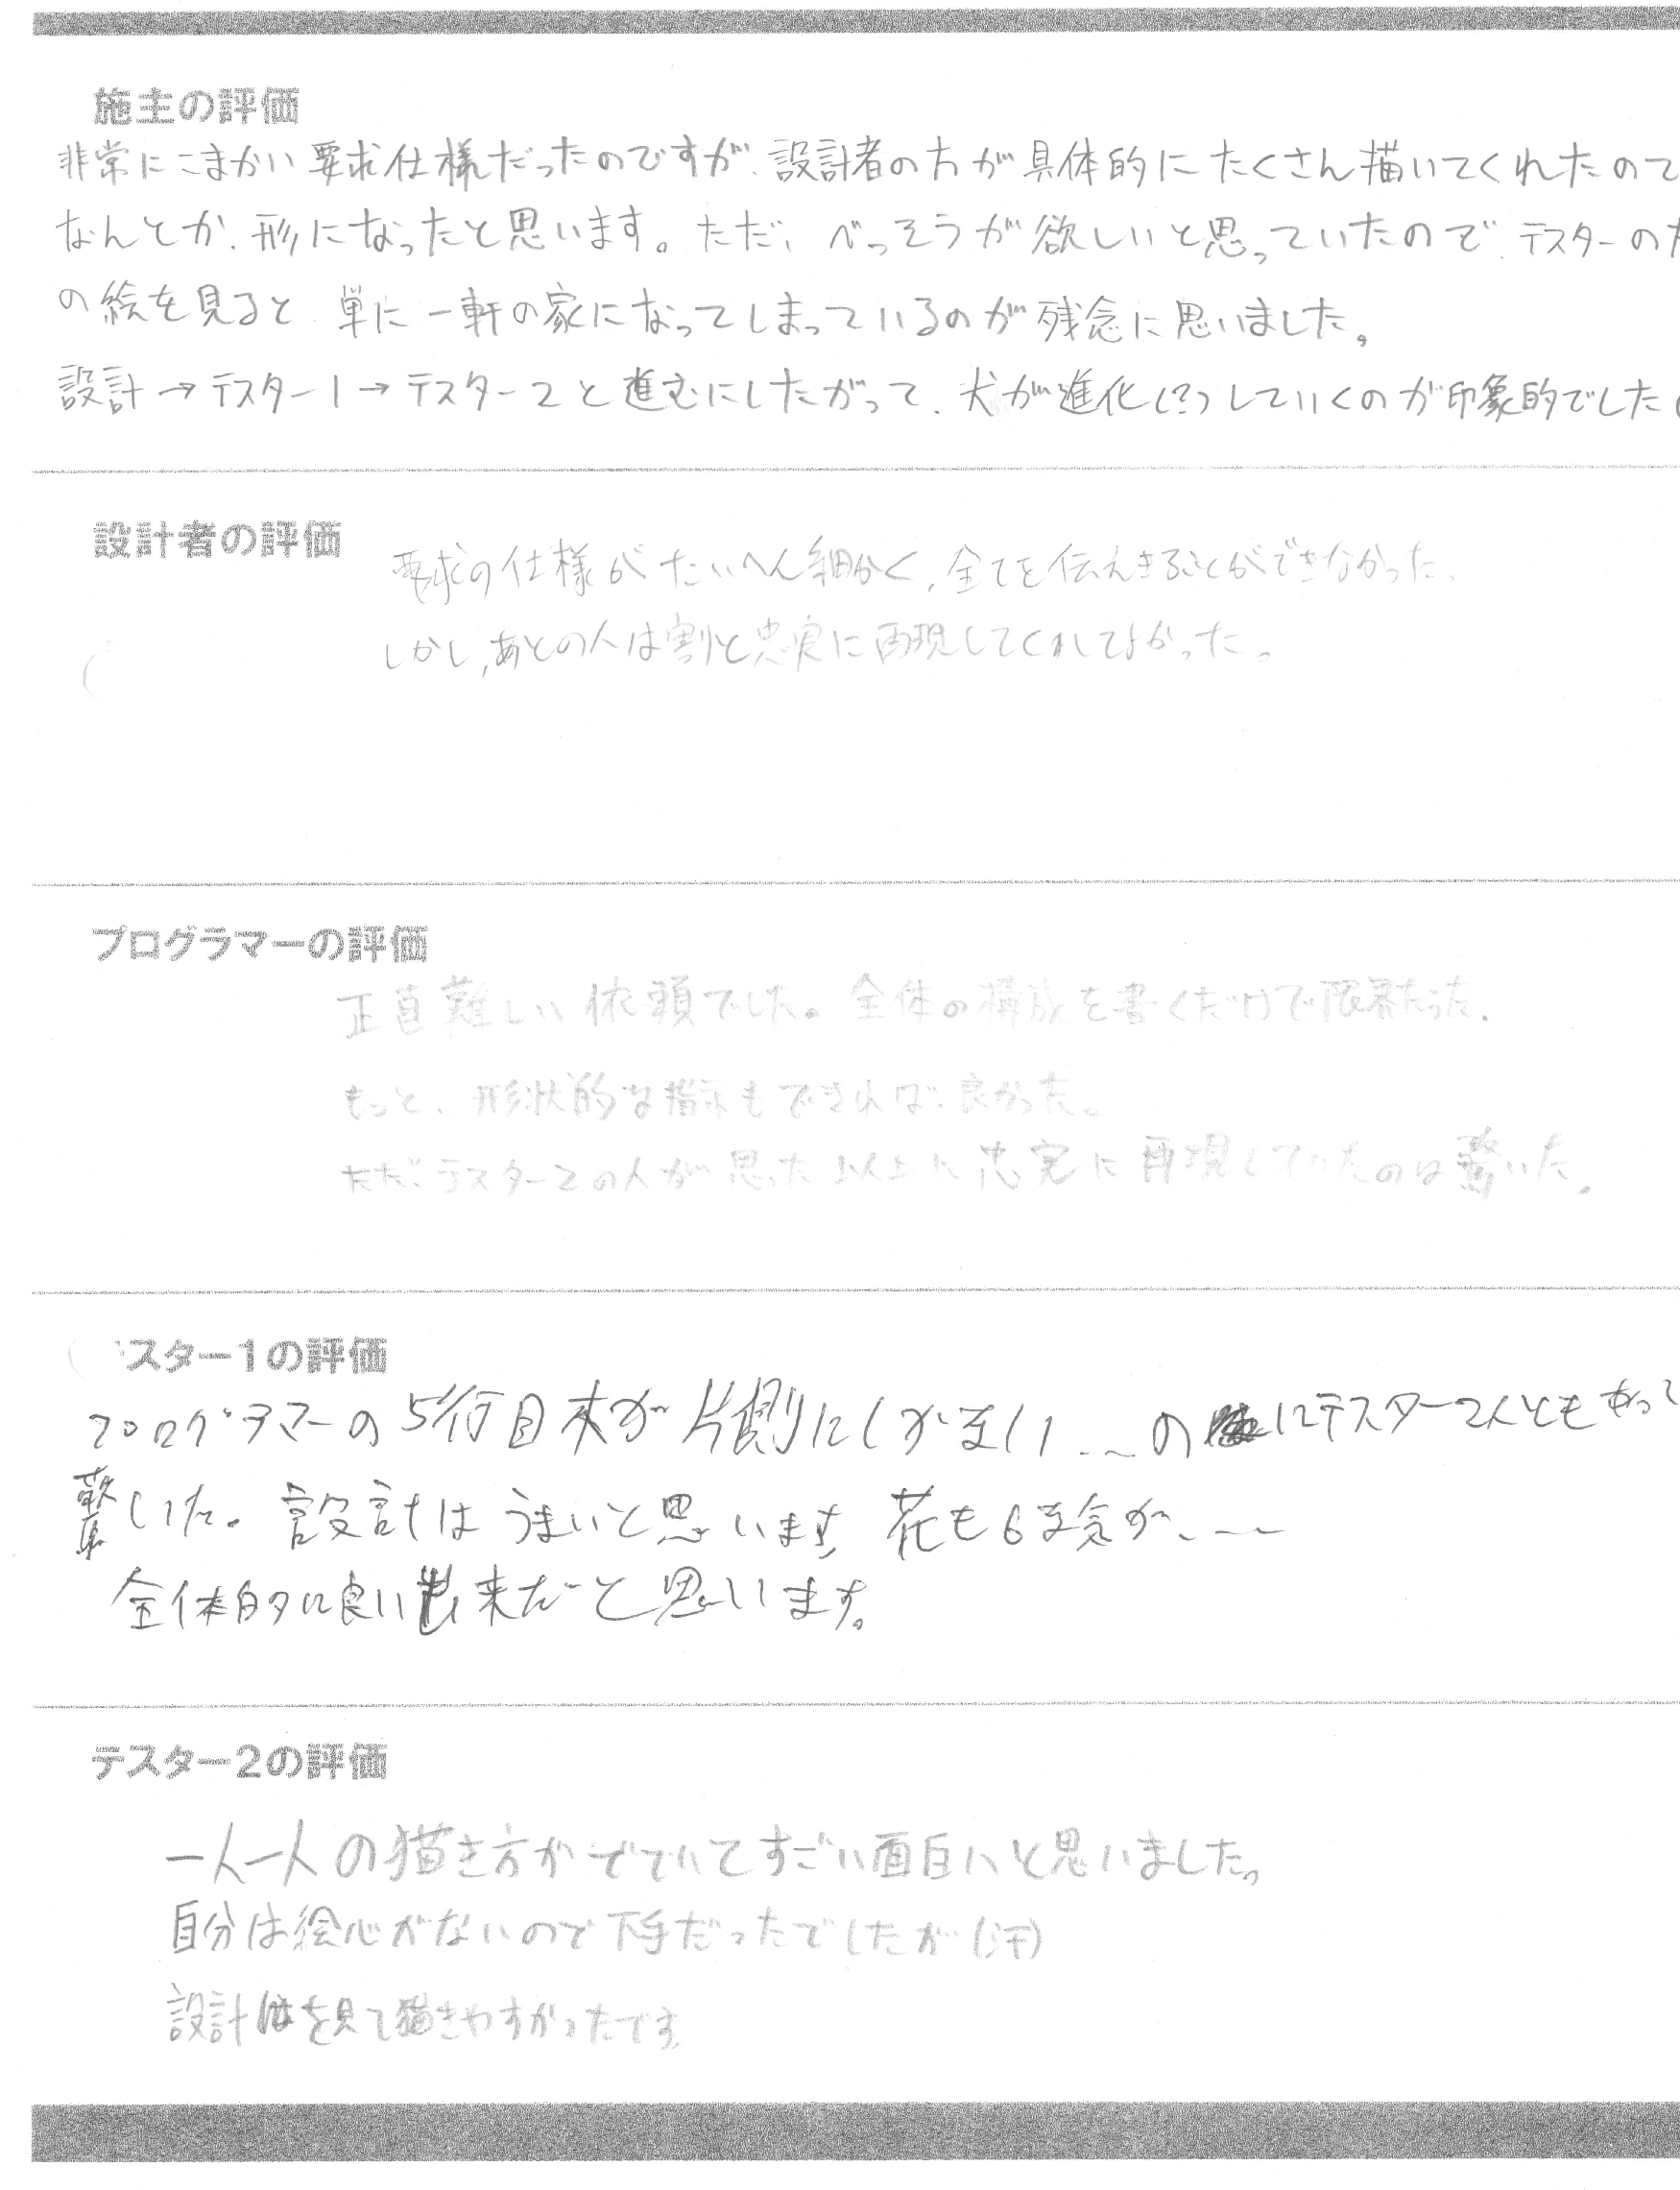 施主の評価
非常にこまかい要求仕様だったのですが、設計者の方が具体的にたくさん描いてくれたので
なんとか、形になったと思います。ただ、べっそうが欲しいと思っていたので、テスターの
の絵を見ると、単に一軒の家になってしまっているのが残念に思いました。
設計→テスター1→テスター2と進むにしたがって、犬が進化(?)していくのが印象的でした
設計者の評価
要求の仕様がたいへん細かく,全てを伝えきることができなかった、
しかし,あとの人は割と忠実に再現してくれてよかった。
プログラマーの評価
正直難しい依頼でした。全体の構成を書くだけで限界だった。
もっと、形状的な指示もできれば良かった。
ただ、テスター2の人が思った以上に忠実に再現していたのは驚いた。
スター1の評価
プログラマーの5行目 木が片側に の にテスター2人とも
驚いた。設計はうまいと思います 花も
全体的に良い出来だと思います。
テスター2の評価
一人一人の描き方がでていてすごい面白いと思いました。
自分は絵心がないので下手だったでしたが(汗)
設計を見て描きやすかったです。